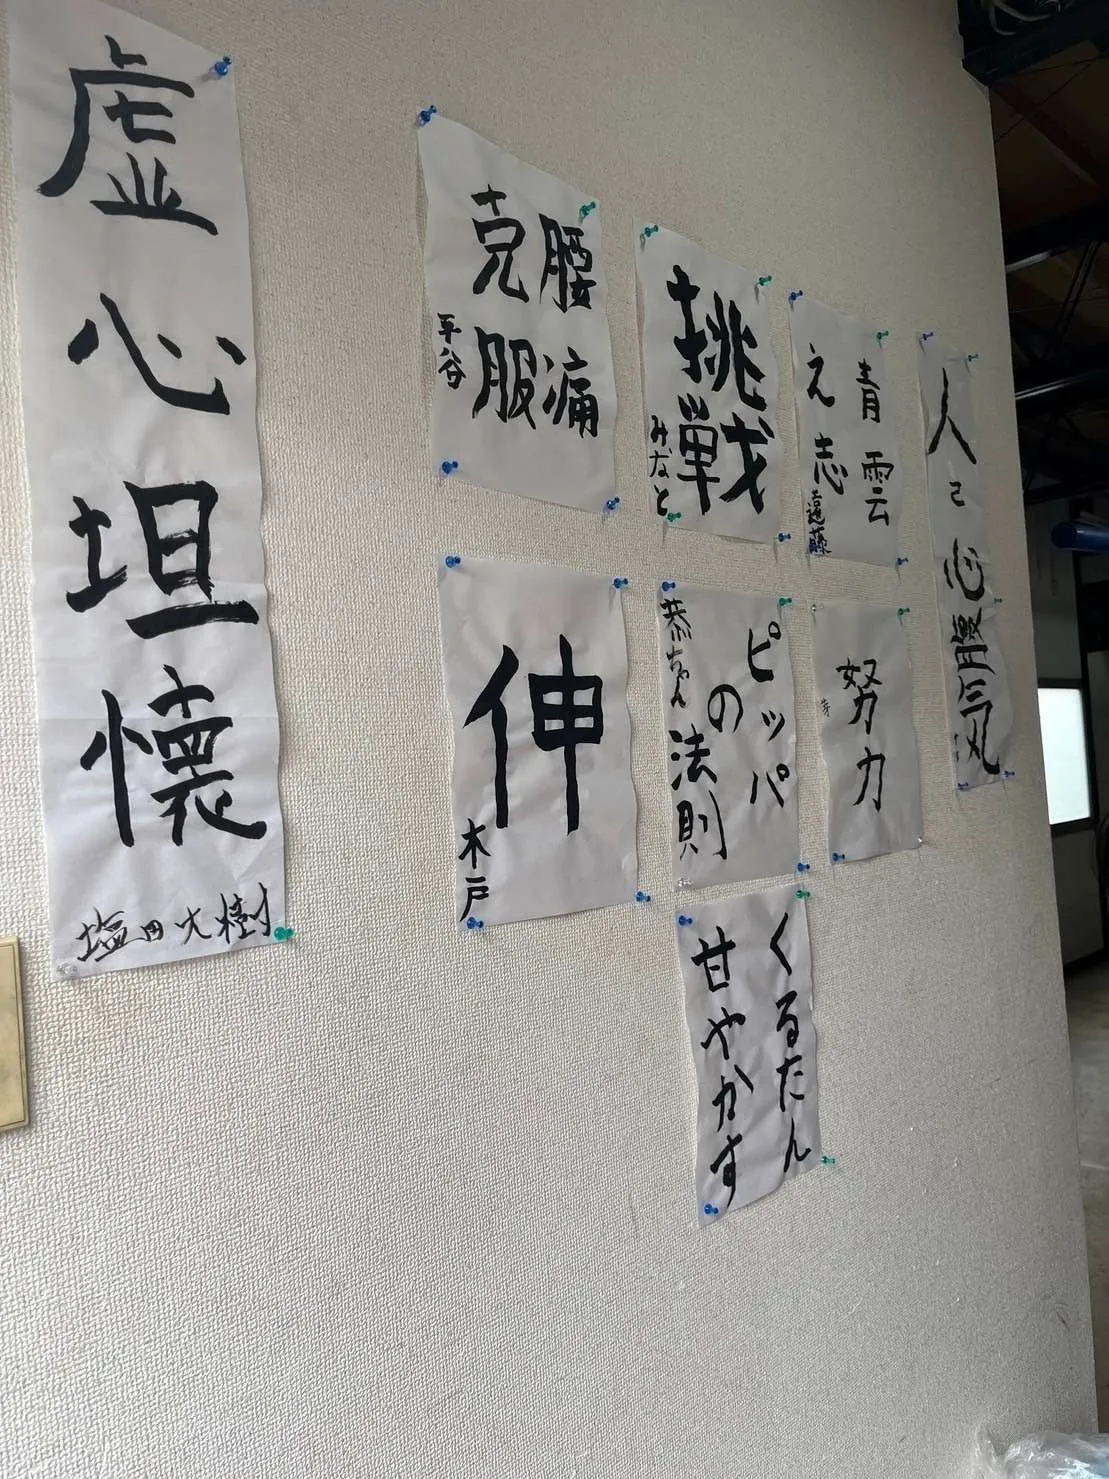 虚心坦懐
塩田大樹
腰痛
克服
平谷
挑戦
みなと
青雲
之志
遠藤
人己心気
伸
木戸
ピッパ
の
法則
恭ちゃん
努力
くるたん
甘やかす